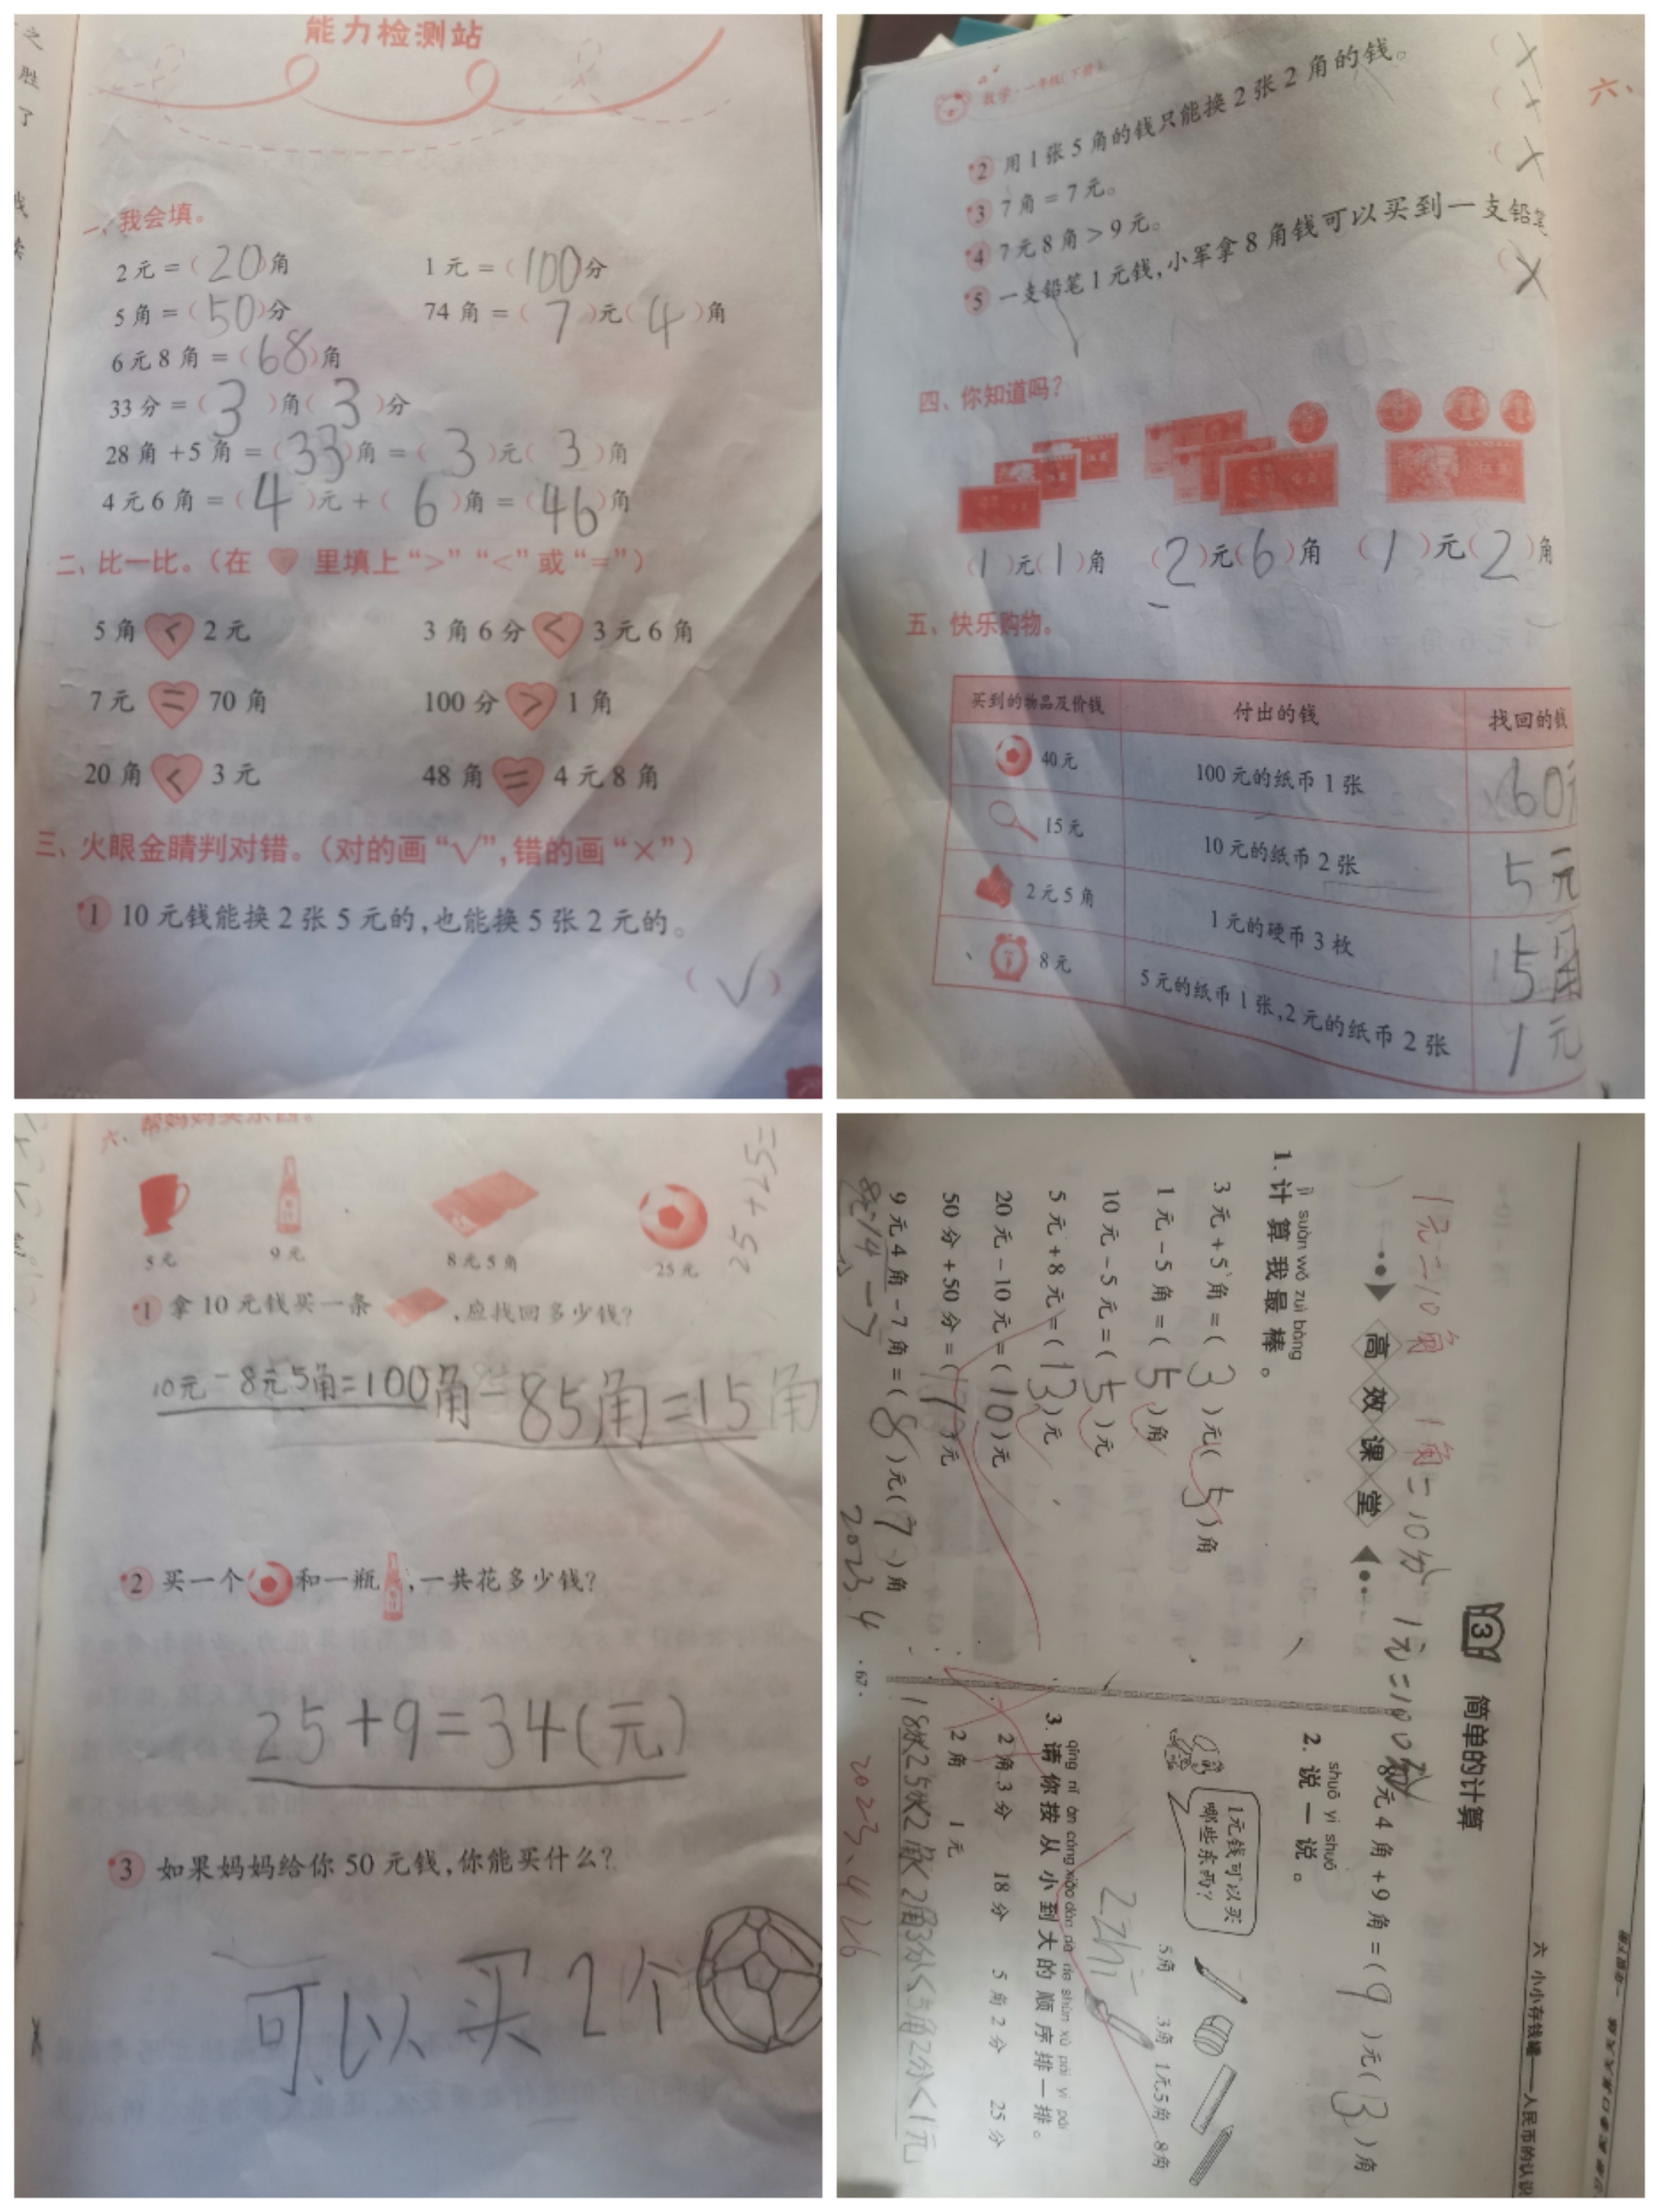 能力检测站
一、我会填。
2元=(20)角 1元=(100)分
5角=(50)分 74角=(7)元(4)角
6元8角=(68)角
33分=(3)角(3)分
28角+5角=(33)角=(3)元(3)角
4元6角=(4)元+(6)角=(46)角
二、比一比。(在 里填上“>”“<”或“=”)
5角<2元 3角6分<3元6角
7元=70角 100分>1角
20角<3元 48角=4元8角
三、火眼金睛判对错。(对的画“√”,错的画“×”)
1 10元钱能换2张5元的,也能换5张2元的。
(√)
数学·一年级(下册)
2 用1张5角的钱只能换2张2角的钱。 (×
3 7角=7元。 (×
4 7元8角>9元。 (×
5 一支铅笔1元钱,小军拿8角钱可以买到一支铅笔
(×
六、
四、你知道吗?
(1)元(1)角 (2)元(6)角 (1)元(2)角
五、快乐购物。
买到的物品及价钱 付出的钱 找回的钱
40元 100元的纸币1张 60元
15元 10元的纸币2张 5元
2元5角 1元的硬币3枚 15角
8元 5元的纸币1张,2元的纸币2张 1元
25+25=
5元 9元 8元5角 25元
1 拿10元钱买一条 ,应找回多少钱?
10元-8元5角=100角-85角=15角
2 买一个 和一瓶 ,一共花多少钱?
25+9=34(元)
3 如果妈妈给你50元钱,你能买什么?
可以买2个
六 小小存钱罐——人民币的认识
3 简单的计算
1元=10角 1角=10分 1元=100分
高效课堂
jì suàn wǒ zuì bàng
1.计算我最棒。
3元+5角=(3)元(5)角
1元-5角=(5)角
10元-5元=(5)元
5元+8元=(13)元
20元-10元=(10)元
50分+50分=(1)元
9元4角-7角=(8)元(7)角
2023.4
·67·
8元4角+9角=(9)元(13)角
shuō yi shuō
2.说一说。
1元钱可以买
哪些东西?
5角 3角 1元5角 8角
2zhī
qǐng nǐ àn cóng xiǎo dào dà de shùn xù pái yi pái
3.请你按从小到大的顺序排一排。
2角3分 18分 5角2分 25分
2角 1元
18分<25分<2角<2角3分<5角2分<1元
2023、4 26